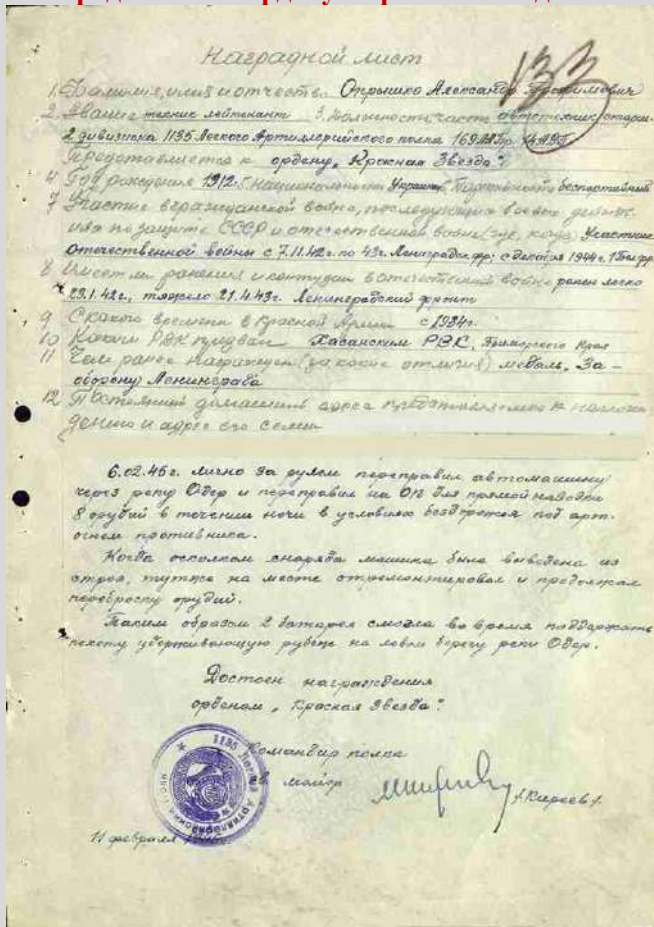 133
Наградной лист
1. Фамилия, имя и отчество Опрышко Александр
2. Звание техник лейтенант 3. Должность, часть автотехник
2 дивизиона 1135 Легкого Артиллерийского полка
Представляется к ордену "Красная Звезда".
4 Год рождения 1912 г. национальность Украинец Партийность беспартийный
7 Участие в гражданской войне, последующих боевых действ.
иях по защите СССР и отечественной войне (где, когда) Участник
Отечественной войны с 7.11.42г. по 43г. Ленинградск. фр; с декабря 1944г. 1 Бел. фр
8 Имеет ли ранения и контузии в отечественной войне ранен легко
23.1.42г., тяжело 21.4.43г. Ленинградский фронт
9 С какого времени в Красной Армии с 1934г.
10 Каким РВК призван Хасанским РВК, Приморского Края
11 Чем ранее награжден (за какие отличия) медаль. За-
оборону Ленинграда
12 Постоянный домашний адрес представляемого к награж
дению и адрес его семьи
6.02.45г. лично за рулем переправил автомашину
через реку Одер и переправил на ОП для прямой наводки
8 орудий в течении ночи в условиях бездорожья под арт.
огнем противника.
Когда осколком снаряда машина была выведена из
строя, тут же на месте отремонтировал и продолжал
переброску орудий.
Таким образом 2 батарея смогла во время поддержать
пехоту удерживающую рубеж на левом берегу реки Одер.
Достоин награждения
орденом "Красная Звезда".
Командир полка
гв. майор /Киреев/.
11 февраля